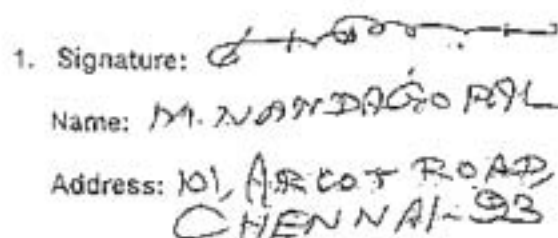 1. Signature:
Name: M. NANDAGOPAL
Address: 101, ARCOT ROAD,
CHENNAI-93